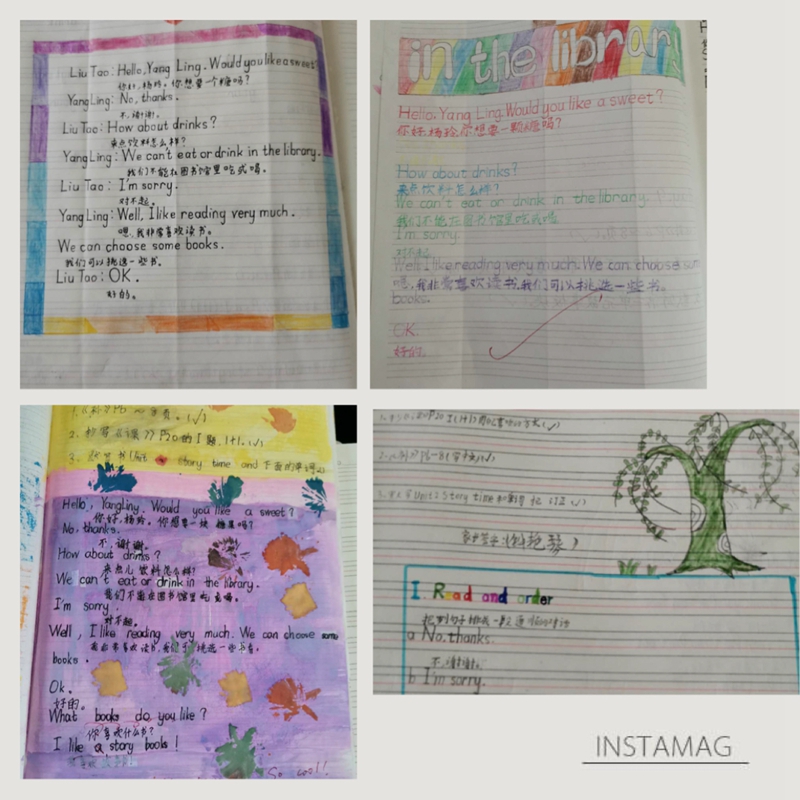 Liu Tao: Hello, Yang Ling. Would you like a sweet?
你好，杨玲。你想要一个糖吗？
Yang Ling: No, thanks.
不，谢谢。
Liu Tao: How about drinks?
来点饮料怎么样？
Yang Ling: We can't eat or drink in the library.
我们不能在图书馆里吃或喝。
Liu Tao: I'm sorry.
对不起。
Yang Ling: Well, I like reading very much.
嗯，我非常喜欢读书。
We can choose some books.
我们可以挑选一些书。
Liu Tao: OK.
好的。
in the library
Hello, Yang Ling. Would you like a sweet?
你好，杨玲，你想要一颗糖吗？
How about drinks?
来点饮料怎么样？
We can't eat or drink in the library.
我们不能在图书馆吃或喝
I'm sorry.
对不起
Well I like reading very much. We can choose
嗯，我非常喜欢读书，我们可以挑选一些书。
books.
OK.
好的。
2. P20的1题
3. story time 和下面的单词
Hello, Yangling. Would you like a sweet?
你好，杨玲。你想要一块糖果吗？
No, thanks.
不，谢谢。
How about drinks?
来点儿饮料怎么样？
We can't eat or drink in the library.
我们不能在图书馆里吃或喝。
I'm sorry.
对不起。
Well, I like reading very much. We can choose some
我非常喜欢读书，我们可以挑选一些书。
books.
Ok.
好的。
What books do you like?
你喜欢什么书？
I like a story books!
So cool!
Story time
I. Read and order
a No, thanks.
不，谢谢。
b I'm sorry.
INSTAMAG